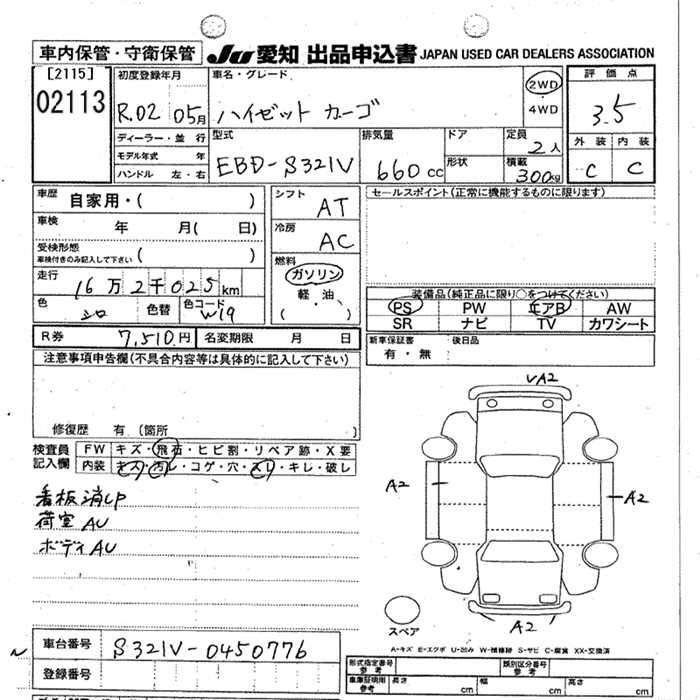 車内保管・守衛保管 JU 愛知 出品申込書 JAPAN USED CAR DEALERS ASSOCIATION
[2115] 02113
初度登録年月 R.02 05月
車名・グレード ハイゼット カーゴ
2WD ・ 4WD
評価点 3.5
外装 C 内装 C
ディーラー・並行
モデル年式 年
ハンドル 左・右
型式 EBD-S321V
排気量 660cc
ドア
形状
定員 2人
積載 300kg
車歴 自家用・( )
車検 年 月( 日)
受検形態 車検付きのみ記入して下さい ( )
走行 16万2千025km
色 シロ 色替 色コード W19
シフト AT
冷房 AC
燃料 ガソリン ・ 軽油 ・ ( )
セールスポイント(正常に機能するものに限ります)
装備品(純正品に限り○をつけてください)
PS PW エアB AW
SR ナビ TV カワシート
R券 7,510円 名変期限 月 日
新車保証書 有・無 後日品
注意事項申告欄(不具合内容等は具体的に記入して下さい)
修復歴 有(箇所 )
検査員記入欄
FW キズ・飛石・ヒビ割・リペア跡・X要
内装 キズ・汚レ・コゲ・穴・スレ・キレ・破し
看板消しP
荷室AU
ボディAU
VA2
A2
A2
A2
スペア
A-キズ E-エクボ U-凹み W-補修跡 S-サビ C-腐食 XX-交換済
車台番号 S321V-0450776
登録番号
形式指定番号 参考
類別区分番号 参考
車庫証明用 参考 長さ cm 幅 cm 高さ cm